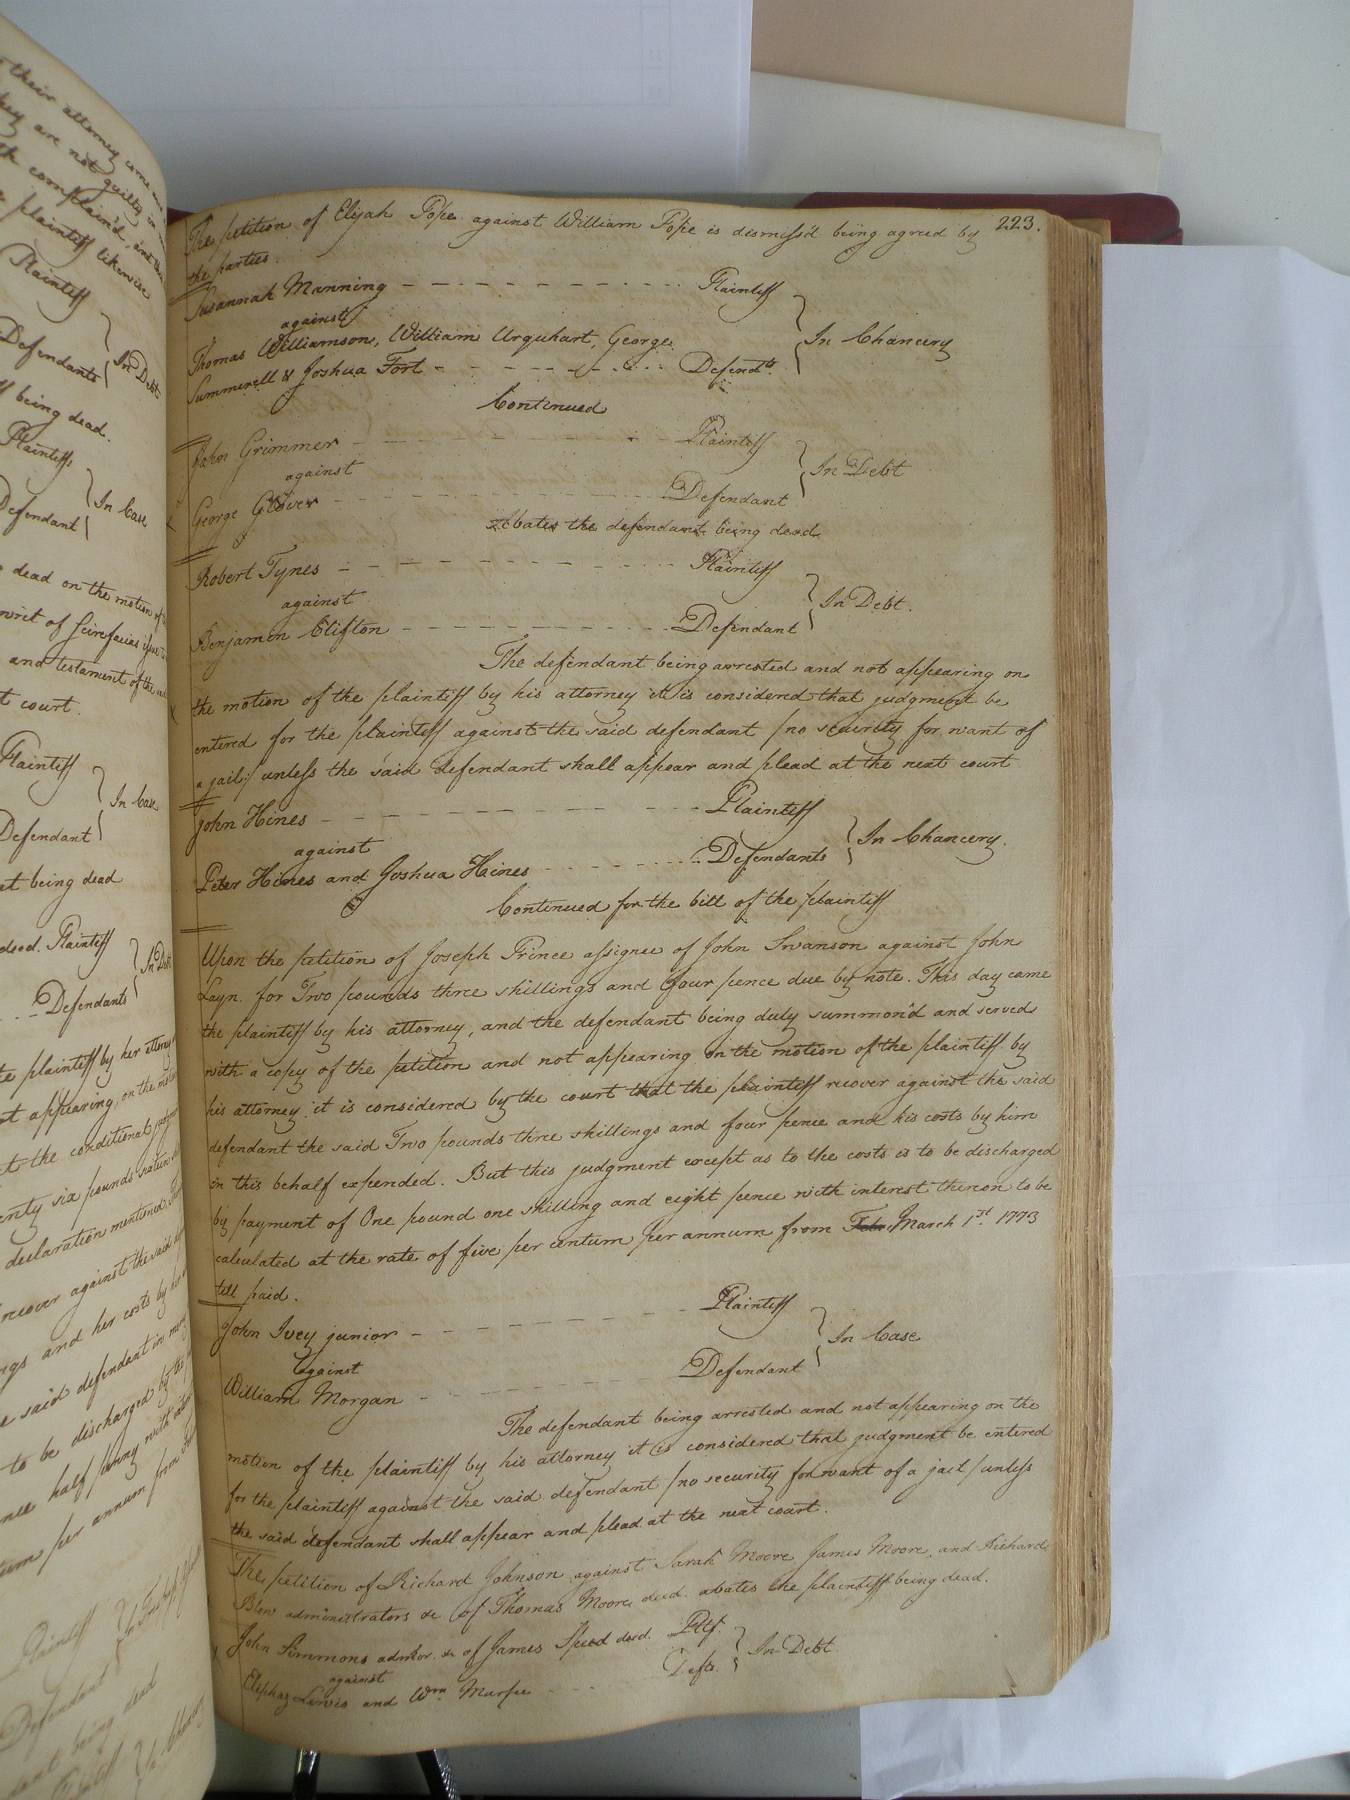 their attorney come and
they are not guilty in
complain'd and
plaintiff likewise
Plaintiff
In Debt
Defendants
being dead.
Plaintiffs
In Case
Defendant
dead on the motion of
writ of Scire facias issue
and testament of the
court.
Plaintiff
In Case
Defendant
being dead
decd. Plaintiff
In Debt
Defendants
plaintiff by her attorney
appearing, on the
the conditional
six pounds
declaration mentioned
recover against the said
and her costs by
said defendant in
to be discharged by
half penny with
per annum from
Plaintiff
Defendant
being dead
223.
The petition of Elijah Pope against William Pope is dismiss'd being agreed by
the parties.
Susannah Manning Plaintiff
against
In Chancery
Thomas Williamson, William Urquhart, George
Summerell & Joshua Fort Defendts.
Continued
John Grimmer Plaintiff
against
In Debt
George Glover Defendant
Abates the defendant being dead
Robert Tynes Plaintiff
against
In Debt.
Benjamin Clifton Defendant
The defendant being arrested and not appearing on
the motion of the plaintiff by his attorney it is considered that judgment be
entered for the plaintiff against the said defendant /no security for want of
a jail/ unless the said defendant shall appear and plead at the next court
John Hines Plaintiff
against
In Chancery.
Peter Hines and Joshua Hines Defendants
Continued for the bill of the plaintiff
Upon the petition of Joseph Prince assignee of John Swanson against John
Layn. for Two pounds three shillings and four pence due by note. This day came
the plaintiff by his attorney, and the defendant being duly summon'd and served
with a copy of the petition and not appearing on the motion of the plaintiff by
his attorney it is considered by the court that the plaintiff recover against the said
defendant the said Two pounds three shillings and four pence and his costs by him
in this behalf expended. But this judgment except as to the costs is to be discharged
by payment of One pound one shilling and eight pence with interest thereon to be
calculated at the rate of five per centum per annum from Febr. March 1st. 1773
till paid.
John Ivey junior Plaintiff
against
In Case
William Morgan Defendant
The defendant being arrested and not appearing on the
motion of the plaintiff by his attorney it is considered that judgment be entered
for the plaintiff against the said defendant /no security for want of a jail/ unless
the said defendant shall appear and plead at the next court.
The petition of Richard Johnson against Sarah Moore James Moore, and Richard
Blow administrators &c of Thomas Moore decd. abates the plaintiff being dead.
John Simmons admor. &c of James Speed decd. Pltf.
against
In Debt
Eliphaz Lewis and Wm Murfee Defts.